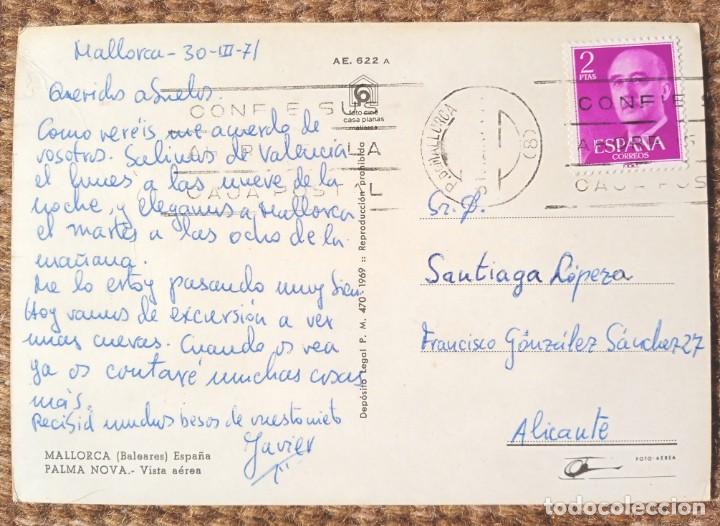 Mallorca-30-III-71
Queridos abuelos.
Como veréis me acuerdo de
vosotros. Salimos de Valencia
el lunes a las nueve de la
noche, y llegamos a Mallorca
el martes a las ocho de la
mañana.
Me lo estoy pasando muy bien
Hoy vamos de excursión a ver
unas cuevas. Cuando os vea
ya os contaré muchas cosas
más.
Recibid muchos besos de vuestro nieto
Javier
MALLORCA (Baleares) España
PALMA NOVA.- Vista aérea
AE. 622 A
foto cine
casa planas
mallorca
Depósito Legal P. M. 470-1969 :: Reproducción prohibida
CONFIE SUS
LA
CAJA POSTAL
MALLORCA
(8)
2
PTAS
ESPAÑA
CORREOS
CONFIE S
CAJA POS
Sr. D.
Santiaga Lópera
Francisco González Sánchez 27
Alicante
FOTO-AEREA
todocoleccion